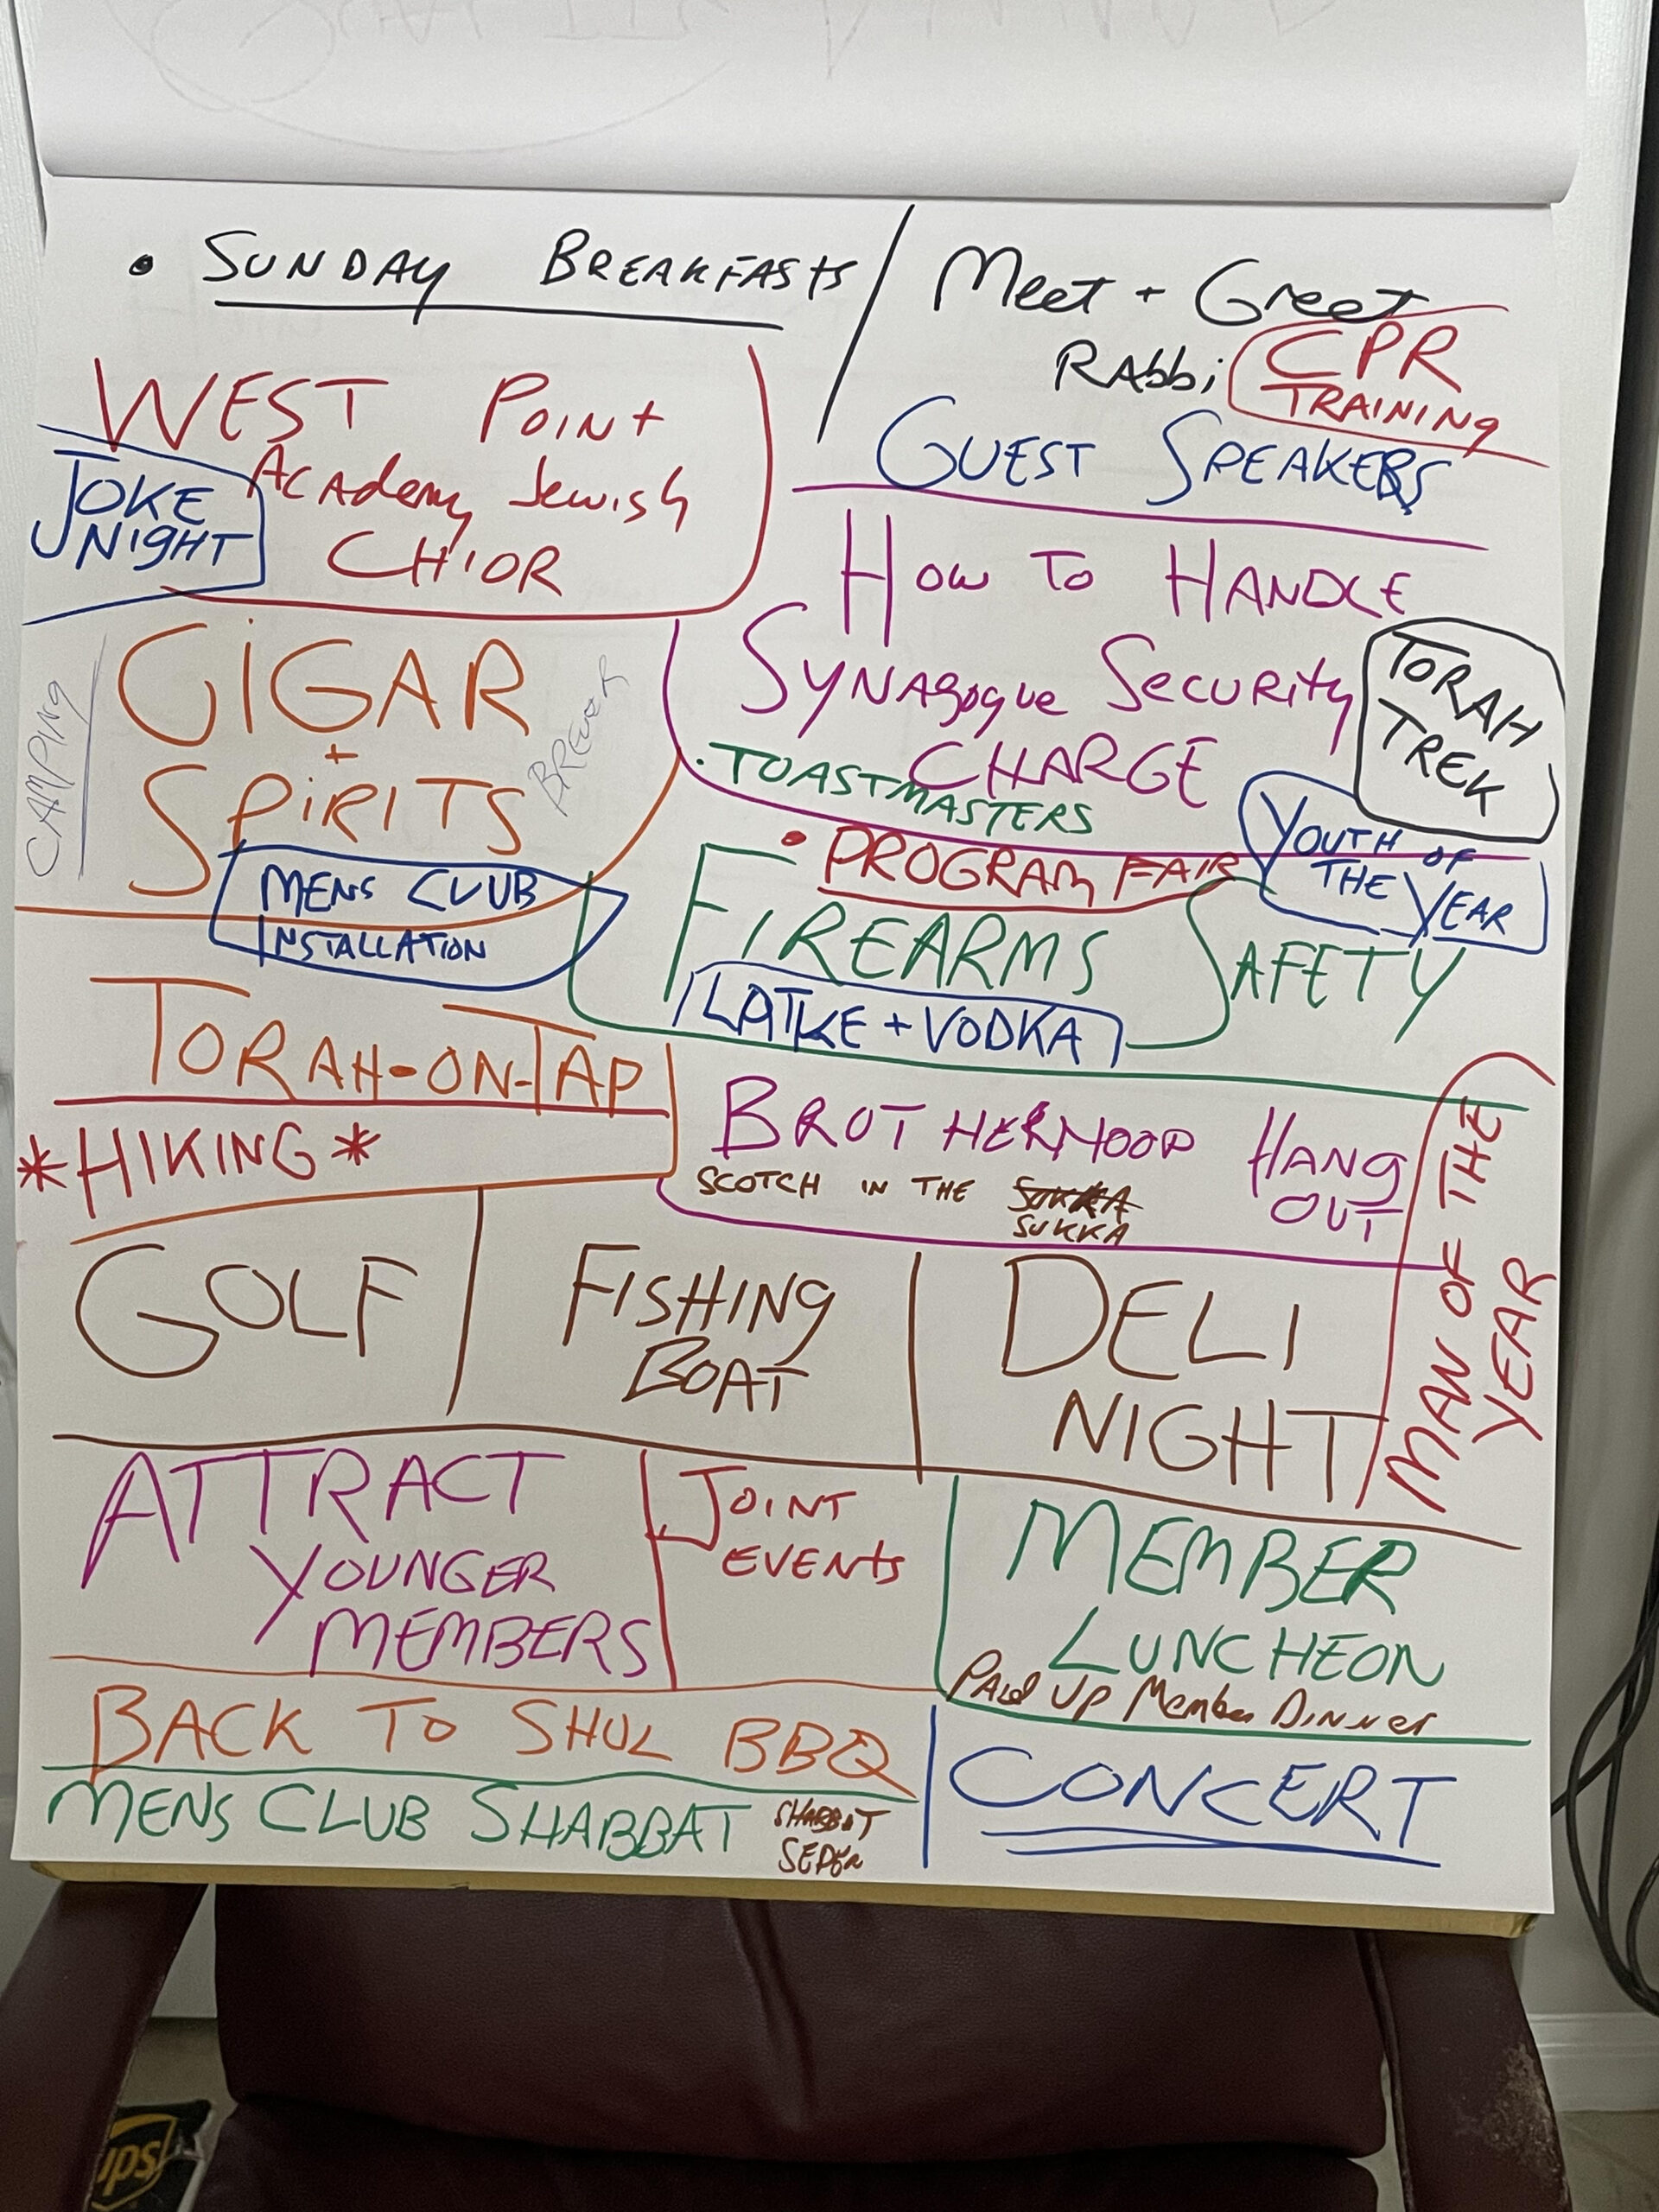 • SUNDAY BREAKFASTS
Meet + Greet
RAbbi
CPR
TRAINING
GUEST SPEAKERS
WEST POINt
ACADemy Jewish
CHIOR
JOKE
NIGHT
HOW TO HANDLE
SYNAgogue SecuRity
CHARGE
TORAH
TREK
CIGAR
+
SPiRITS
CAMPING
• TOASTMASTERS
• PROGRAM FAIR
YOUTH OF
THE YEAR
MENS CLUB
INSTALLATION
FIREARMS SAFETY
LATKE + VODKA
TORAH-ON-TAP
*HIKING*
BROTHERHOOD HANG
OUT
SCOTCH IN THE SUKKA
SUKKA
MAN OF THE
YEAR
GOLF
FISHING
BOAT
DELI
NIGHT
ATTRACT
YOUNGER
MEMBERS
JOINT
EVENTS
MEMBER
LUNCHEON
PAid UP Member Dinner
BACK TO SHUL BBQ
MENS CLUB SHABBAT
SHABBAT
SEDER
CONCERT
ups